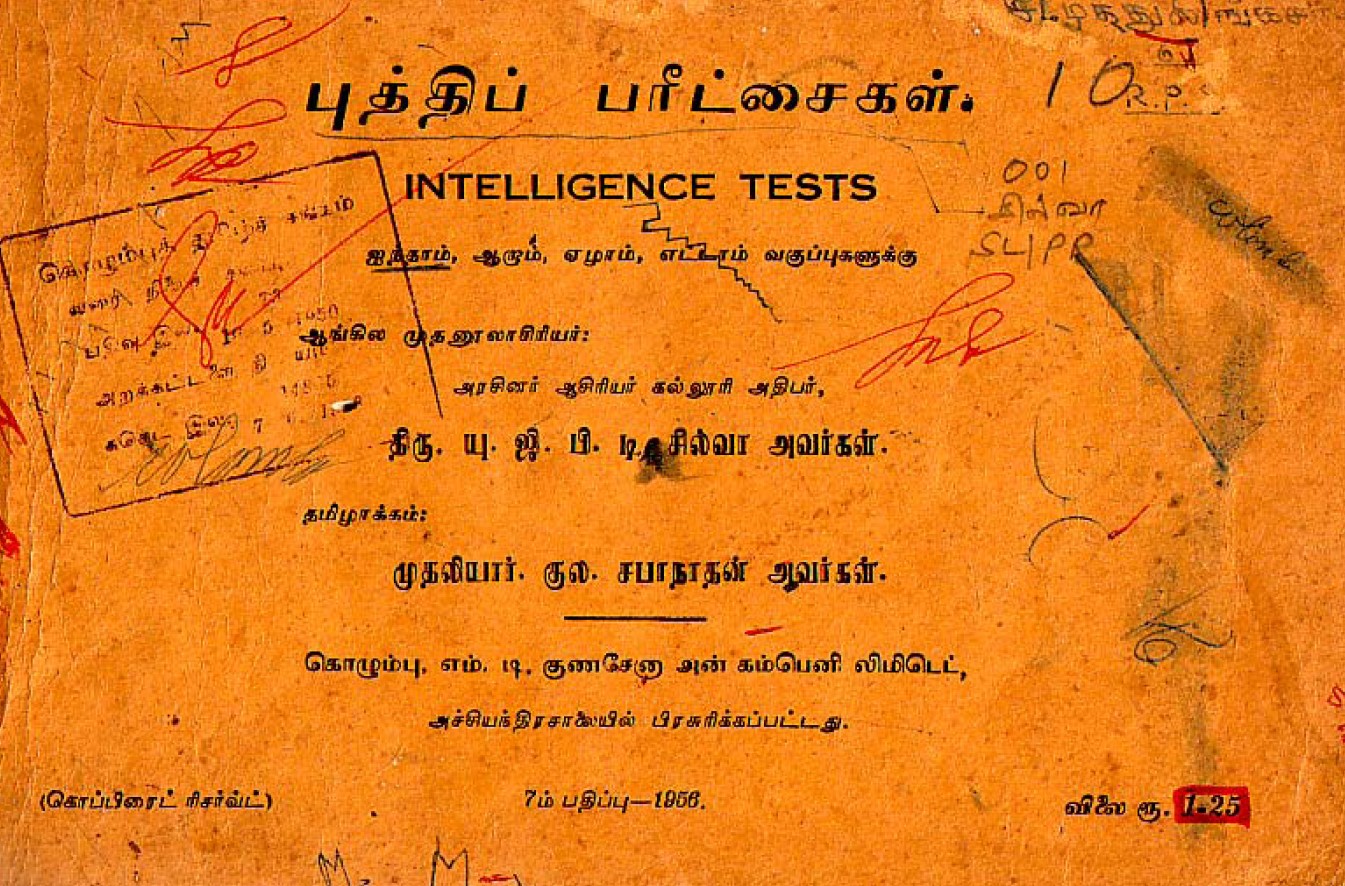 புத்திப் பரீட்சைகள்.
10
R.P.
INTELLIGENCE TESTS
001
சில்வா
SL/PR
கொழும்புத் தமிழ்ச் சங்கம்
ஐந்தாம், ஆறாம், ஏழாம், எட்டாம் வகுப்புகளுக்கு
ஆங்கில முதனூலாசிரியர்:
அரசினர் ஆசிரியர் கல்லூரி அதிபர்,
திரு. யு. ஜி. பி. டி சில்வா அவர்கள்.
தமிழாக்கம்:
முதலியார். குல. சபாநாதன் அவர்கள்.
கொழும்பு, எம். டி. குணசேன அன் கம்பெனி லிமிடெட்,
அச்சியந்திரசாலையில் பிரசுரிக்கப்பட்டது.
(கொப்பிரைட் ரிசர்வ்ட்) 7ம் பதிப்பு—1956. விலை ரூ. 1-25